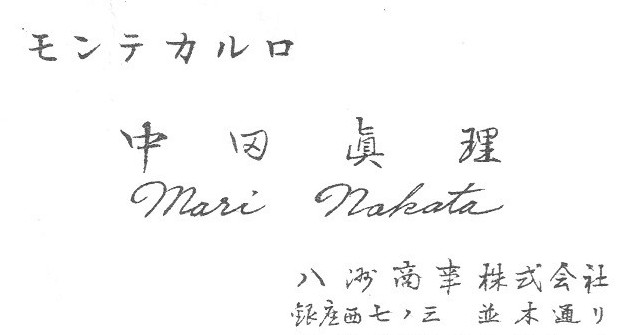 モンテカルロ
中田眞理
Mari Nakata
八洲商事株式会社
銀座西七ノ三 並木通り